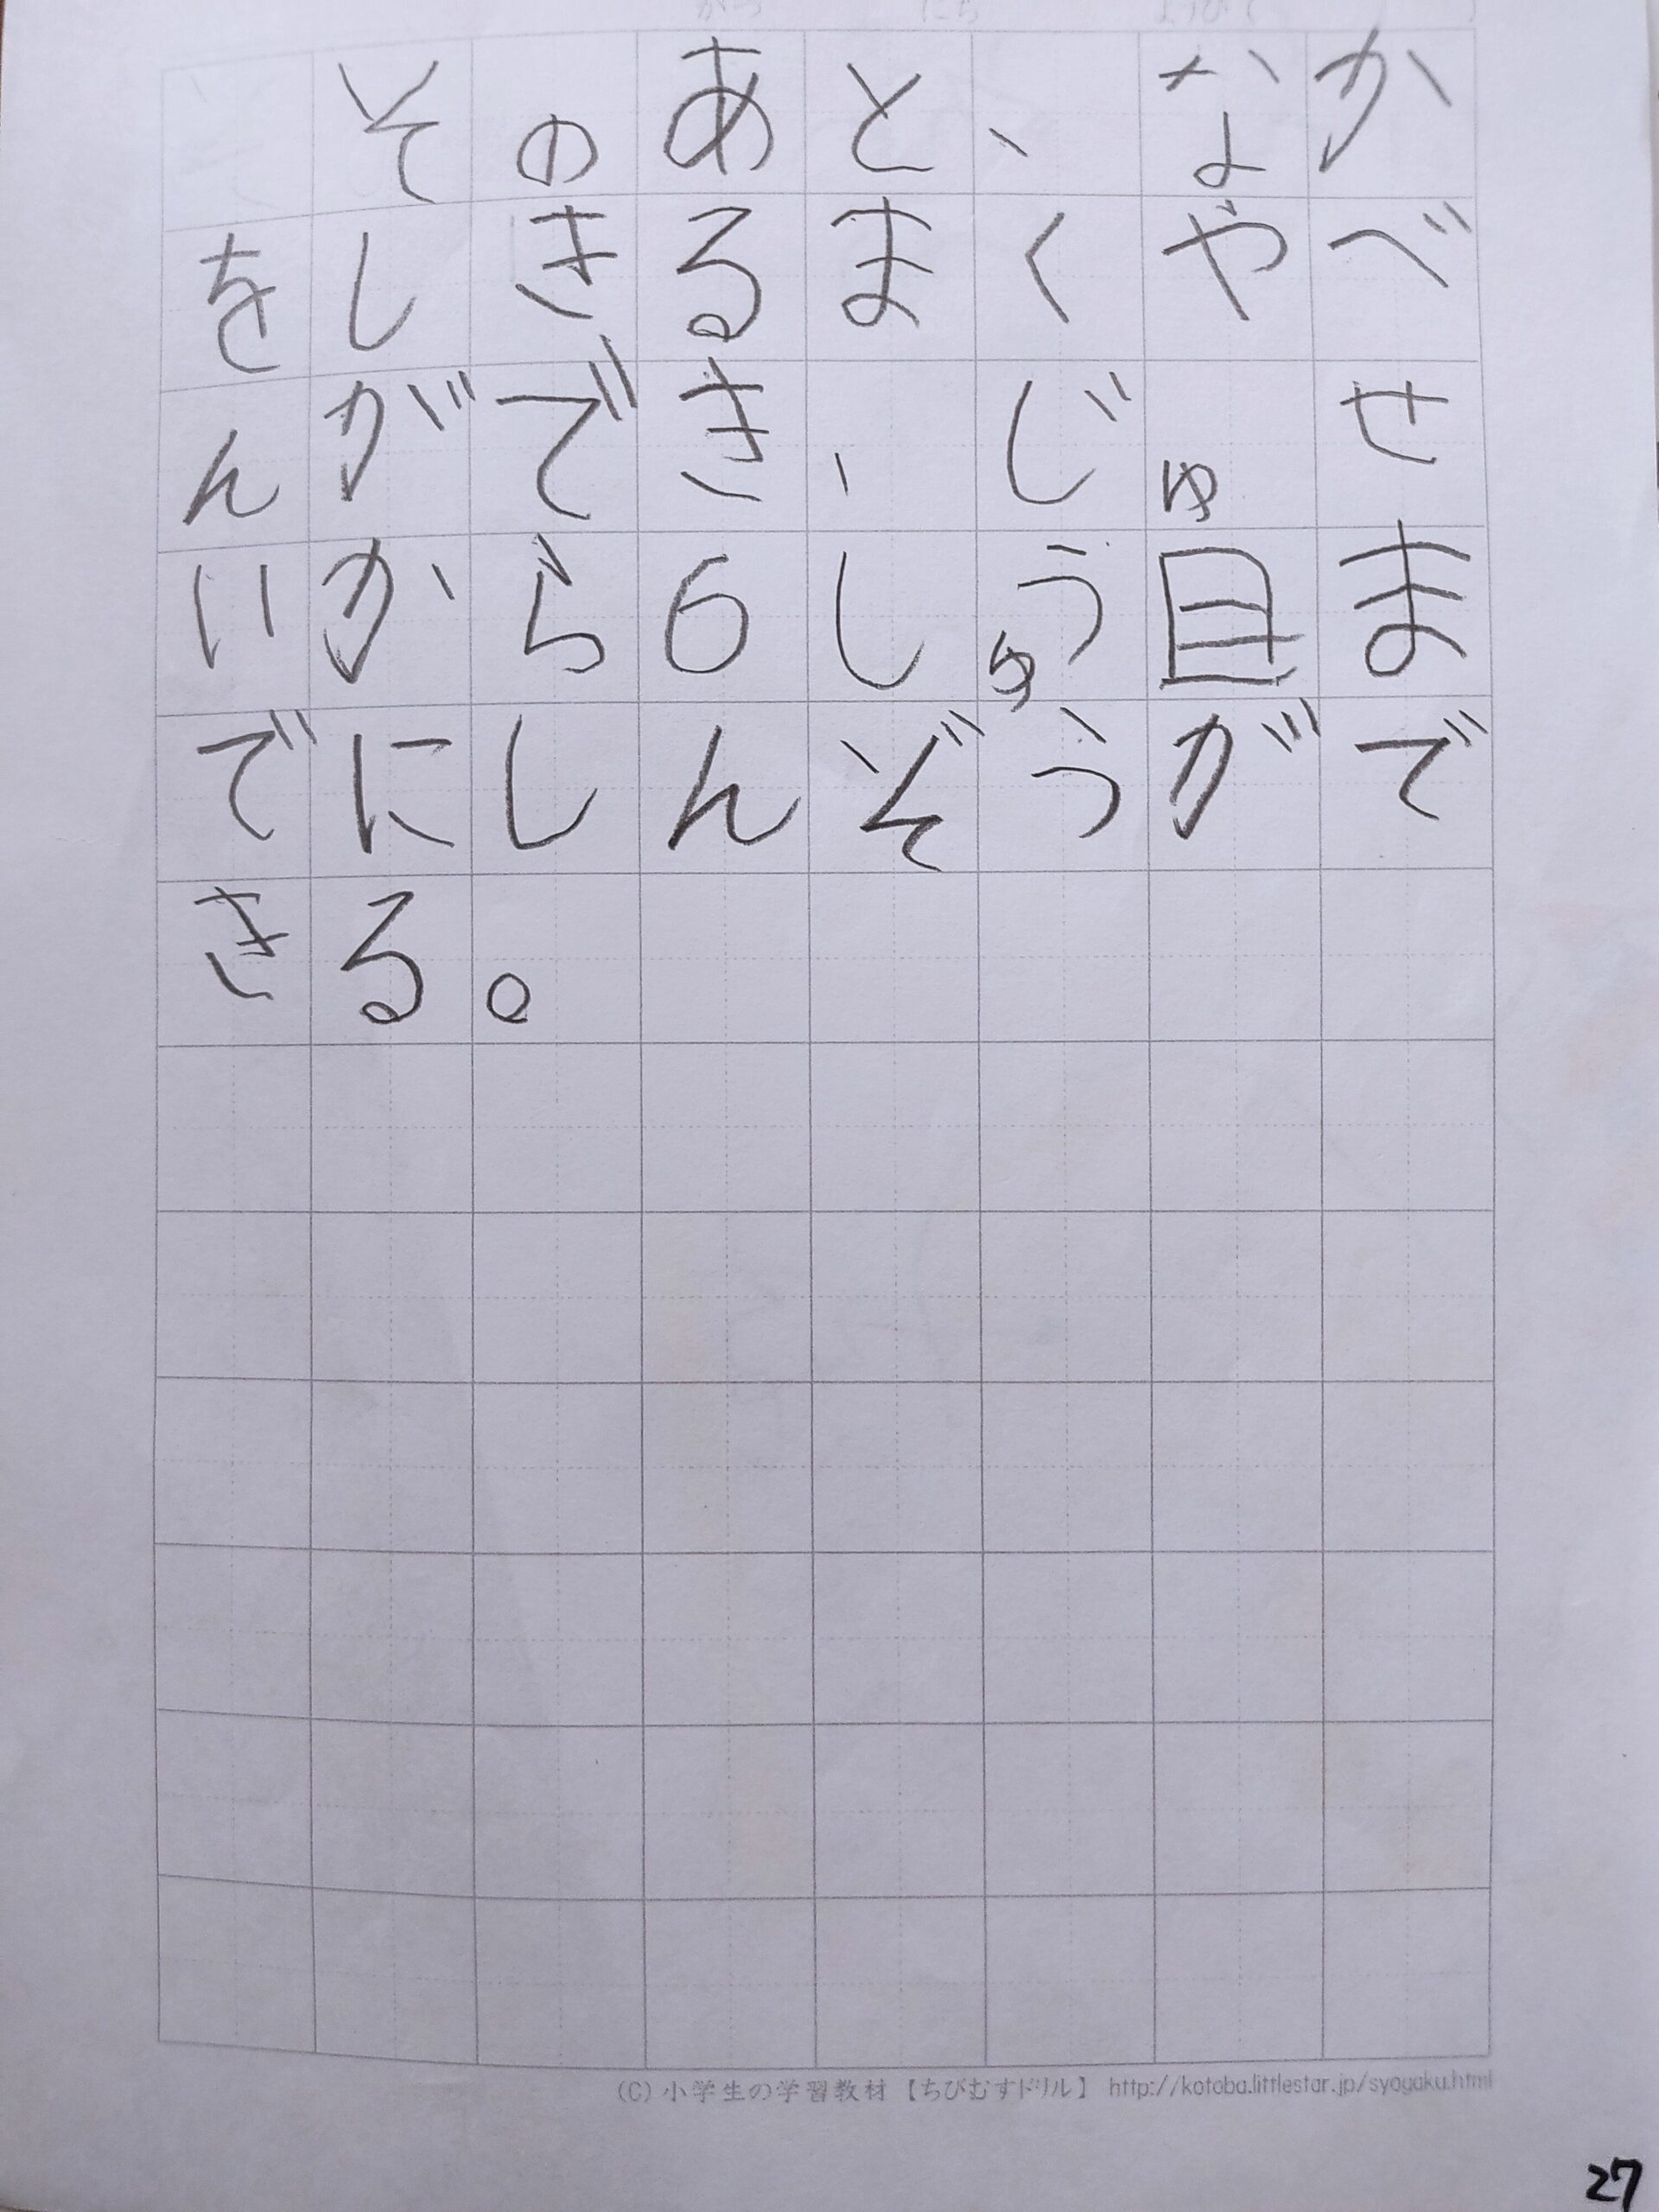 そのあと、なか
をしきるまくやべ
んができ、じゅせ
いから6しゅう目ま
でにしんぞうがで
きる。
(C)小学生の学習教材【ちびむすドリル】 http://kotoba.littlestar.jp/syogaku.html
27